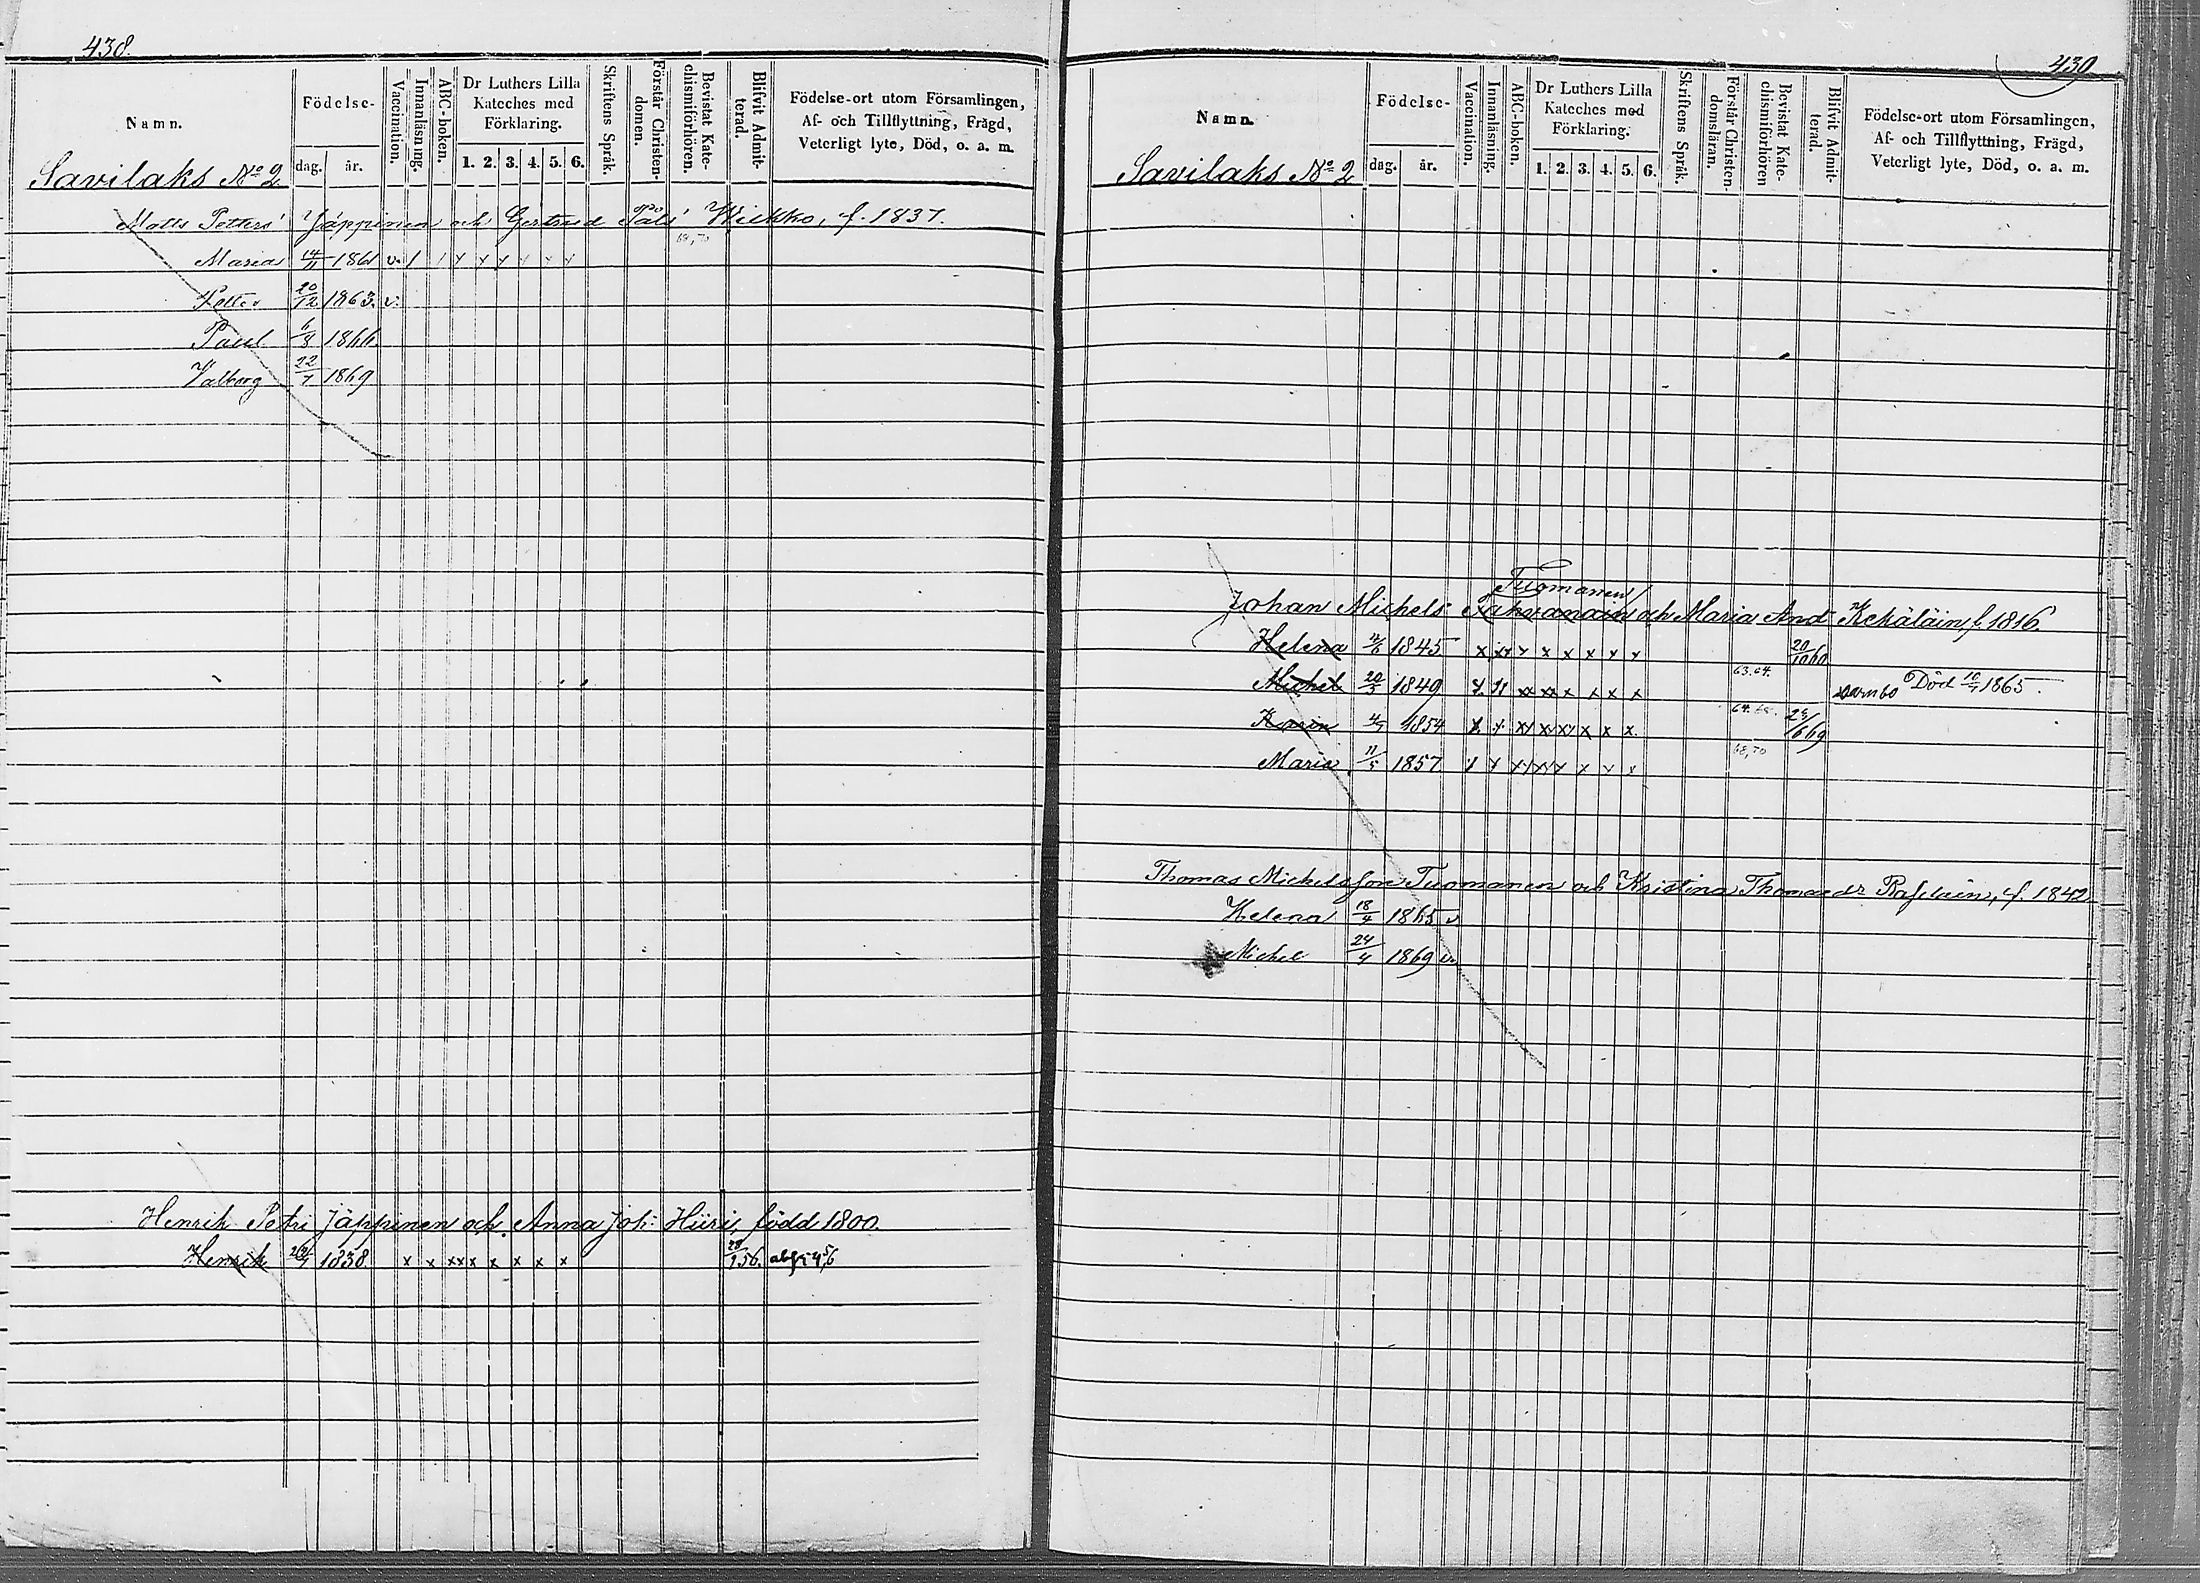 438.
Namn.
Födelse-
dag. år.
Vaccination.
Innanläsning.
ABC-boken.
Dr Luthers Lilla
Kateches med
Förklaring.
1. 2. 3. 4. 5. 6.
Skriftens Språk.
Förstår Christen-
domen.
Bevistat Kate-
chismiförhören.
Blifvit Admit-
terad.
Födelse-ort utom Församlingen,
Af- och Tillflyttning, Frägd,
Veterligt lyte, Död, o. a. m.
Savilaks No 2
Matts Petters Jäppinen och Gertrud Påls Wiekko, f. 1837.
68,70
Maria 14/11 1861 v.
Petter 20/12 1863. v.
Paul 6/3 1866
Valborg 22/7 1869
Henrik Petri Jäppinen och Anna Joh: Hiiri, född 1800.
Henrik 1838. x x xx x x x x x 56.
430
Namn.
Födelse-
dag. år.
Vaccination.
Innanläsning.
ABC-boken.
Dr Luthers Lilla
Kateches med
Förklaring.
1. 2. 3. 4. 5. 6.
Skriftens Språk.
Förstår Christen-
domsläran.
Bevistat Kate-
chismiförhören
Blifvit Admit-
terad.
Födelse-ort utom Församlingen,
Af- och Tillflyttning, Frägd,
Veterligt lyte, Död, o. a. m.
Savilaks No 2
Tuomanen
Johan Michels och Maria And Kekäläin, f. 1816.
Helena 1845 20/10 60
63.64.
Michel 20/5 1849 Död 1865.
64.68.
Karin 1854 69
68,70
Maria 11/5 1857
Thomas Michelsson Tuomanen och Kristina Thomasdr f. 1842
Helena 18/4 1865 v.
Michel 24/4 1869 v.